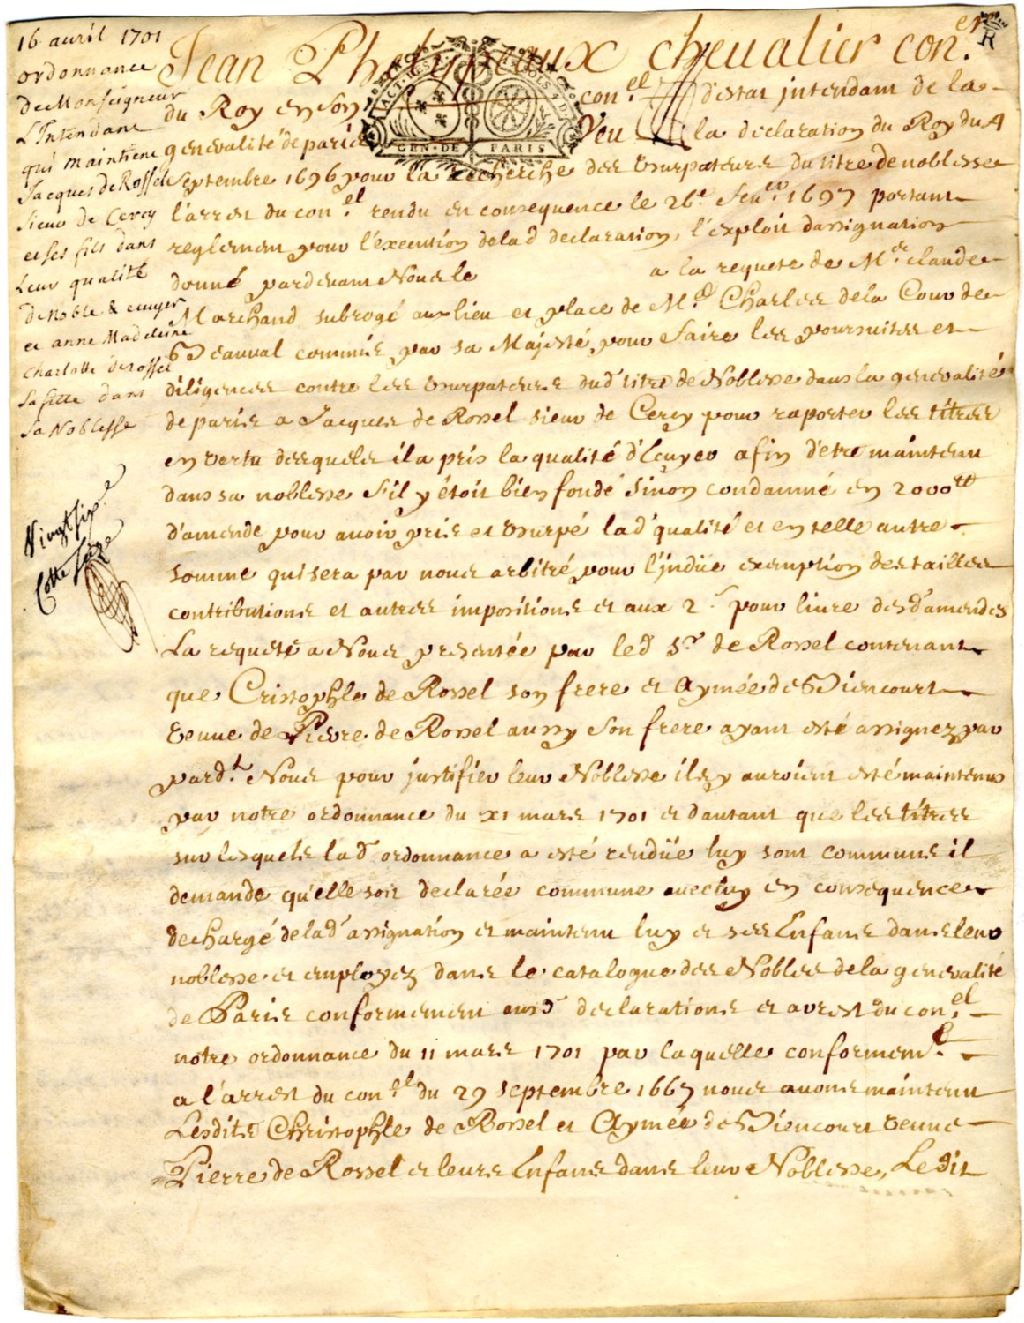 16 avril 1701
ordonnance
de Monseigneur
L'Intendant
qui maintient
Jacques de Rossel
sieur de Cercy
et ses fils dans
leur qualité
de Noble & ecuyer
et anne Madeleine
Charlotte de Rossel
sa fille dans
sa Noblesse
Vingt six.e
Cotte
Jean Phelypeaux chevalier con.er
du Roy en son con.el d'estat intendant de la
GEN·DE PARIS
generalité de paris Veu la declaration du Roy du 4
Septembre 1696 pour la recherche des Usurpateurs du titre de noblesse
l'arrest du con.el rendu en consequence le 26.e feu.er 1697 portant
reglement pour l'execution de la d declaration, l'exploit dassignation
donné pardevant Nous le a la requete de M.e claude
Marchand subrogé au lieu et place de M.e Charles de la Cour de
Beauval commis par sa Majesté pour faire les poursuites et
diligences contre les Usurpateurs dud' titre de Noblesse dans la generalité
de paris a Jacques de Rossel sieur de Cercy pour raporter les titres
en vertu desquels il a pris la qualité d'Ecuyer afin d'etre maintenu
dans sa noblesse s'il y étoit bien fondé sinon condamné en 2000tt
d'amende pour avoir pris et usurpé lad' qualité et en telle autre
somme qui sera par nous arbitré pour l'indüe exemption des tailles
contributions et autres impositions et aux 2 s pour livre desd' amendes
La requete a Nous presentée par led' S.r de Rossel contenant
que Cristophle de Rossel son frere et Aymée de Biencourt
veuve de Pierre de Rossel aussy son frere ayant esté assignez par
pard.t Nous pour justifier leur Noblesse ils y auroient esté maintenus
par notre ordonnance du XI mars 1701 et d'autant que les titres
sur lesquels lad' ordonnance a esté rendüe luy sont communs il
demande qu'elle soit declarée commune avec luy en consequence
dechargé de lad' assignation et maintenu luy et ses Enfans dans leur
noblesse et employez dans le catalogue des Nobles de la generalité
de Paris conformement ausd' declarations et arrest du con.el
notre ordonnance du 11 mars 1701 par laquelle conformem.t
a l'arrest du con.el du 29 septembre 1667 nous avons maintenu
Lesdits Christophle de Rossel et Aymée de Biencourt veuve
Pierre de Rossel et leurs Enfans dans leur Noblesse, Ledit